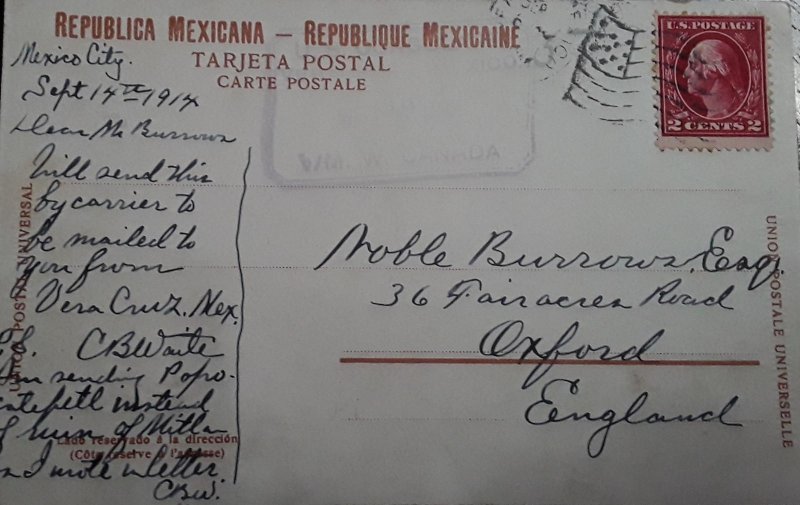 REPUBLICA MEXICANA — REPUBLIQUE MEXICAINE
TARJETA POSTAL
CARTE POSTALE
Mexico City.
Sept 14th 1914
Dear Mr Burrows
Will send this
by carrier to
be mailed to
you from
Vera Cruz, Mex.
P.S. CBWaite
Am sending Popo-
catepetl instead
of ruin of Mitla
I wrote in letter.
CBW.
Noble Burrows, Esq.
36 Fairacres Road
Oxford
England
U.S. POSTAGE
2 CENTS 2
UNION POSTAL UNIVERSAL
UNION POSTALE UNIVERSELLE
Lado reservado á la dirección
(Côté réservé à l'adresse)